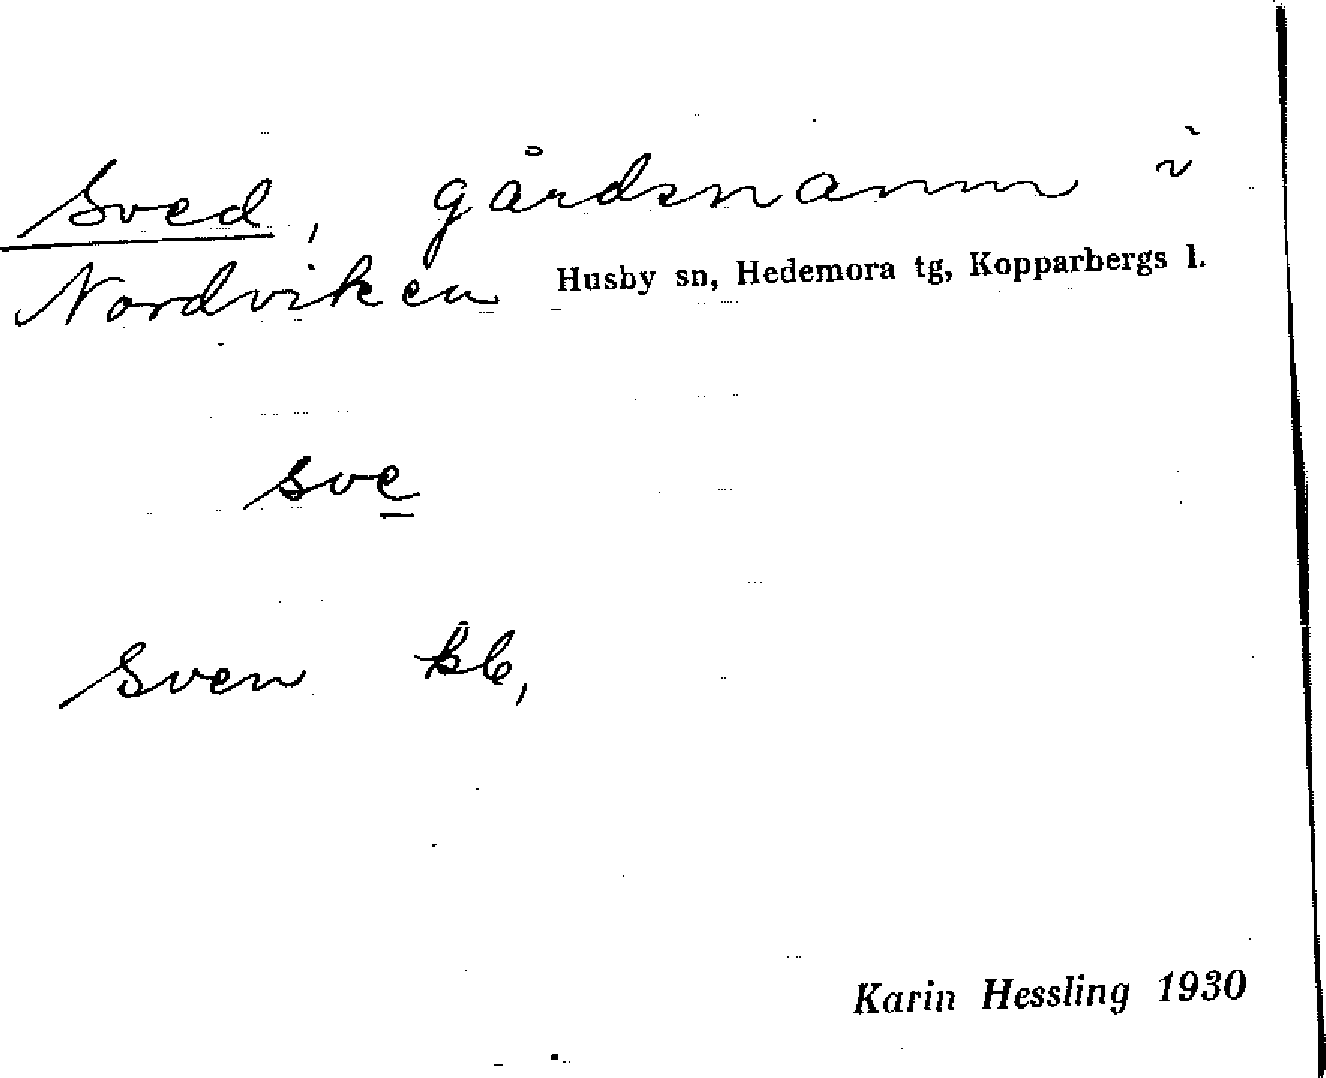 Sved, gårdsnamn i
Nordviken Husby sn, Hedemora tg, Kopparbergs l.
sve
Sven kb,
Karin Hessling 1930